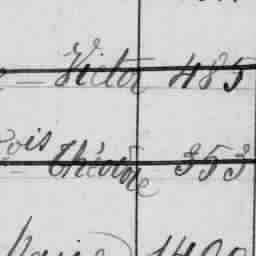 Victor 485
ois Théodore 353
Marie 1400